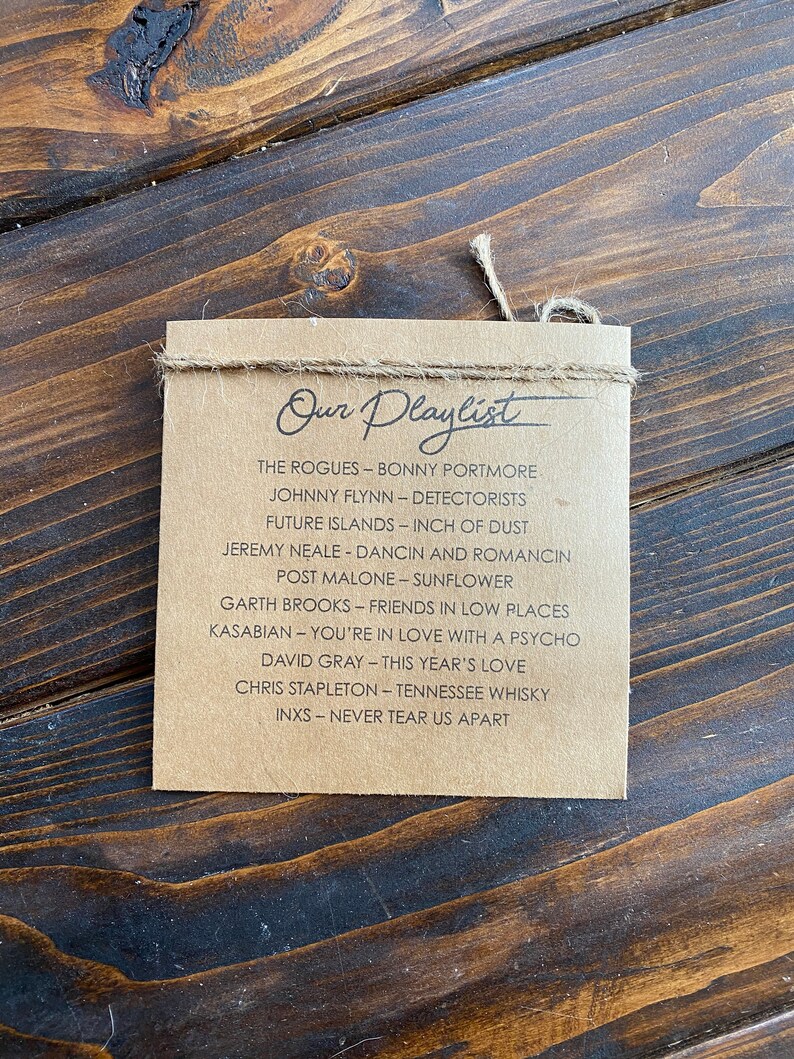 Our Playlist
THE ROGUES – BONNY PORTMORE
JOHNNY FLYNN – DETECTORISTS
FUTURE ISLANDS – INCH OF DUST
JEREMY NEALE - DANCIN AND ROMANCIN
POST MALONE – SUNFLOWER
GARTH BROOKS – FRIENDS IN LOW PLACES
KASABIAN – YOU'RE IN LOVE WITH A PSYCHO
DAVID GRAY – THIS YEAR'S LOVE
CHRIS STAPLETON – TENNESSEE WHISKY
INXS – NEVER TEAR US APART